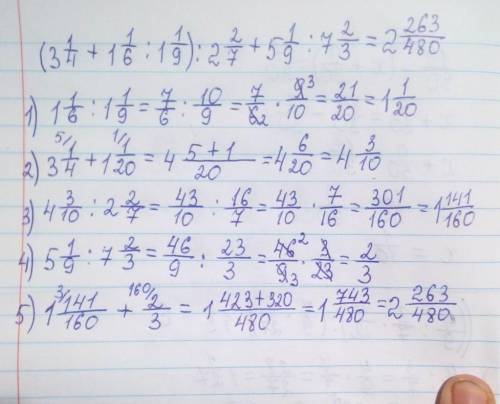 (3 1/4 + 1 1/6 : 1 1/9) : 2 2/7 + 5 1/9 : 7 2/3 = 2 263/480
1) 1 1/6 : 1 1/9 = 7/6 : 10/9 = 7/6 2 · 9 3/10 = 21/20 = 1 1/20
2) 3 5/1/4 + 1 1/1/20 = 4 5+1/20 = 4 6/20 = 4 3/10
3) 4 3/10 : 2 2/7 = 43/10 : 16/7 = 43/10 · 7/16 = 301/160 = 1 141/160
4) 5 1/9 : 7 2/3 = 46/9 : 23/3 = 46 2/9 3 · 3/23 = 2/3
5) 1 3/141/160 + 160/2/3 = 1 423+320/480 = 1 743/480 = 2 263/480